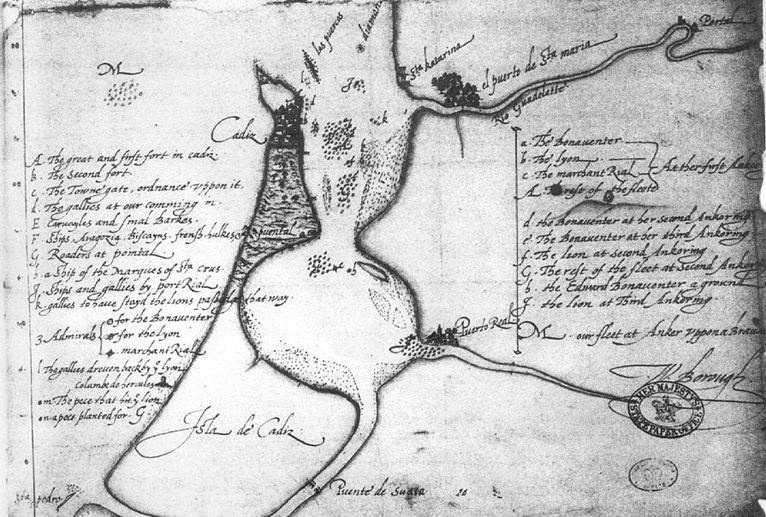 las puercas
diamante
Sta katarina
el puerto de Sta maria
Rio Guadelette
Portal
M
Cadiz
A. The great and first fort in cadiz
b. The Second fort.
c. The Towne gate, ordnance vppon it,
d. The gallies at our comming in.
E Carvoyles and smal Barkes.
F. Ships Aragozia, Biscayns, frensh hulkes &c
G. Roaders at pointal
h. a Ship of the Marques of Sta crus.
J. Ships and gallies by port Rial
K. gallies to have stayd the lions passage that way.
3 Admirals
for the Bonaventer
for the lyon
marchant Rial
l The gallies dreven back by ye lyon
Columbe de hercules
m The pece that hit ye lion
n a pece planted for G
puental
a. The Bonaventer
b. The lyon
c. The marchant Rial
At ther first Ankoring
A. The rest of the fleete
d. the Bonaventer at her second Ankoring
e. the Bonaventer at her third Ankoring
f. The lion at second Ankoring
G. The rest of the fleet at Second Ankoring
h. the Edward Bonaventer a ground
J. the lion at Third Ankoring
M our fleet at Anker vppon a
Puerto Real
W. Borough
HER MAJESTY'S STATE PAPER OFFICE
Isla de Cadiz
Puente de Suaza
20
pedro